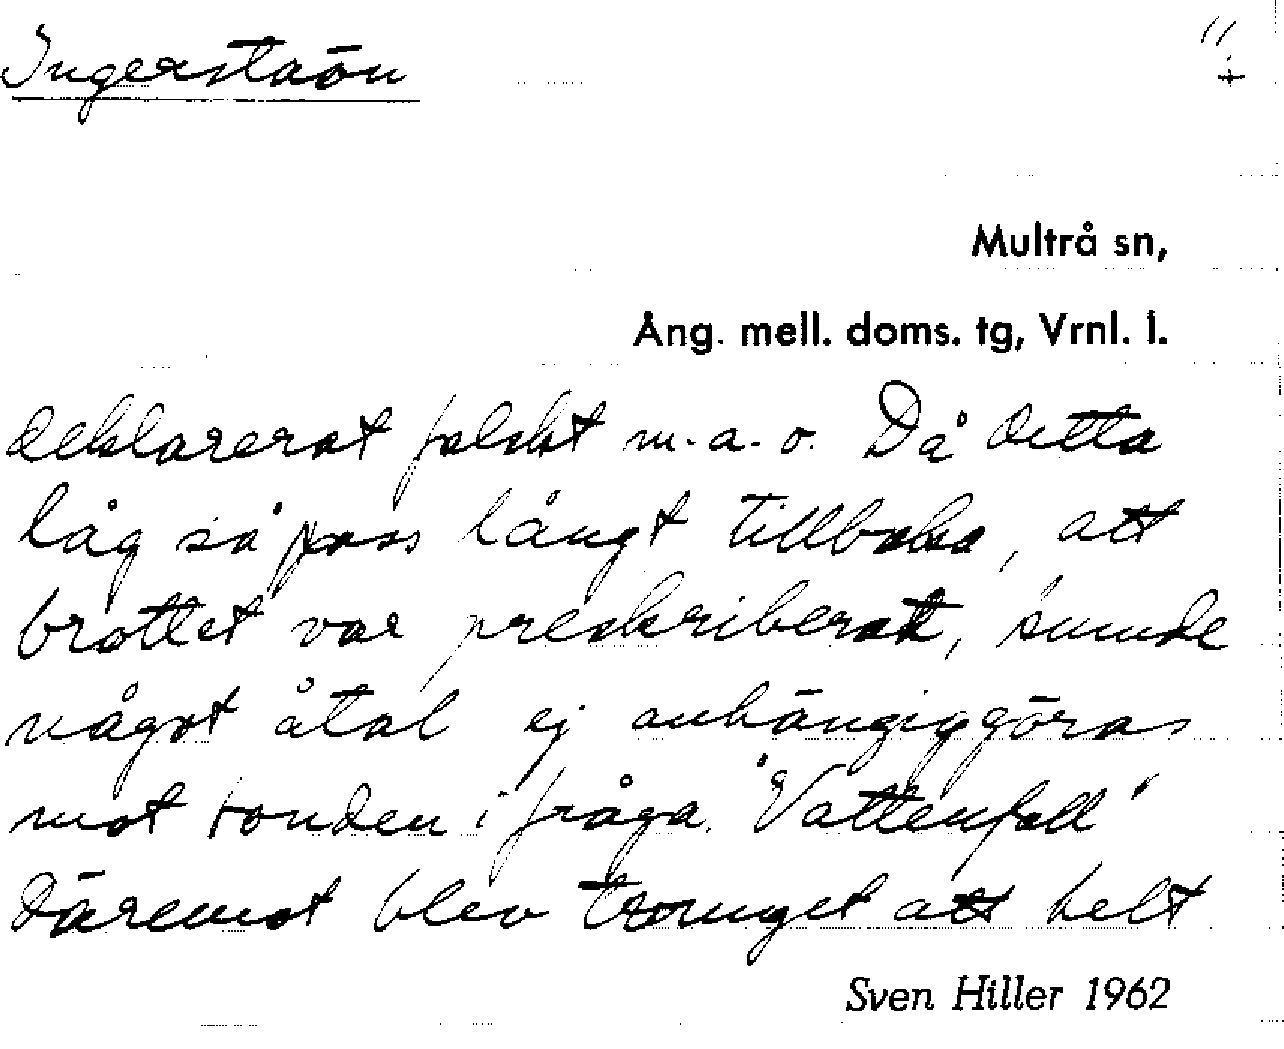 Ingerstaön
Multrå sn,
Ång. mell. doms. tg, Vrnl. l.
deklarerat falskt m.a.o. Då detta
låg så pass långt tillbaka, att
brottet var preskriberat, kunde
något åtal ej anhängiggöras
mot bonden i fråga. "Vattenfall"
däremot blev tvunget att helt
Sven Hiller 1962